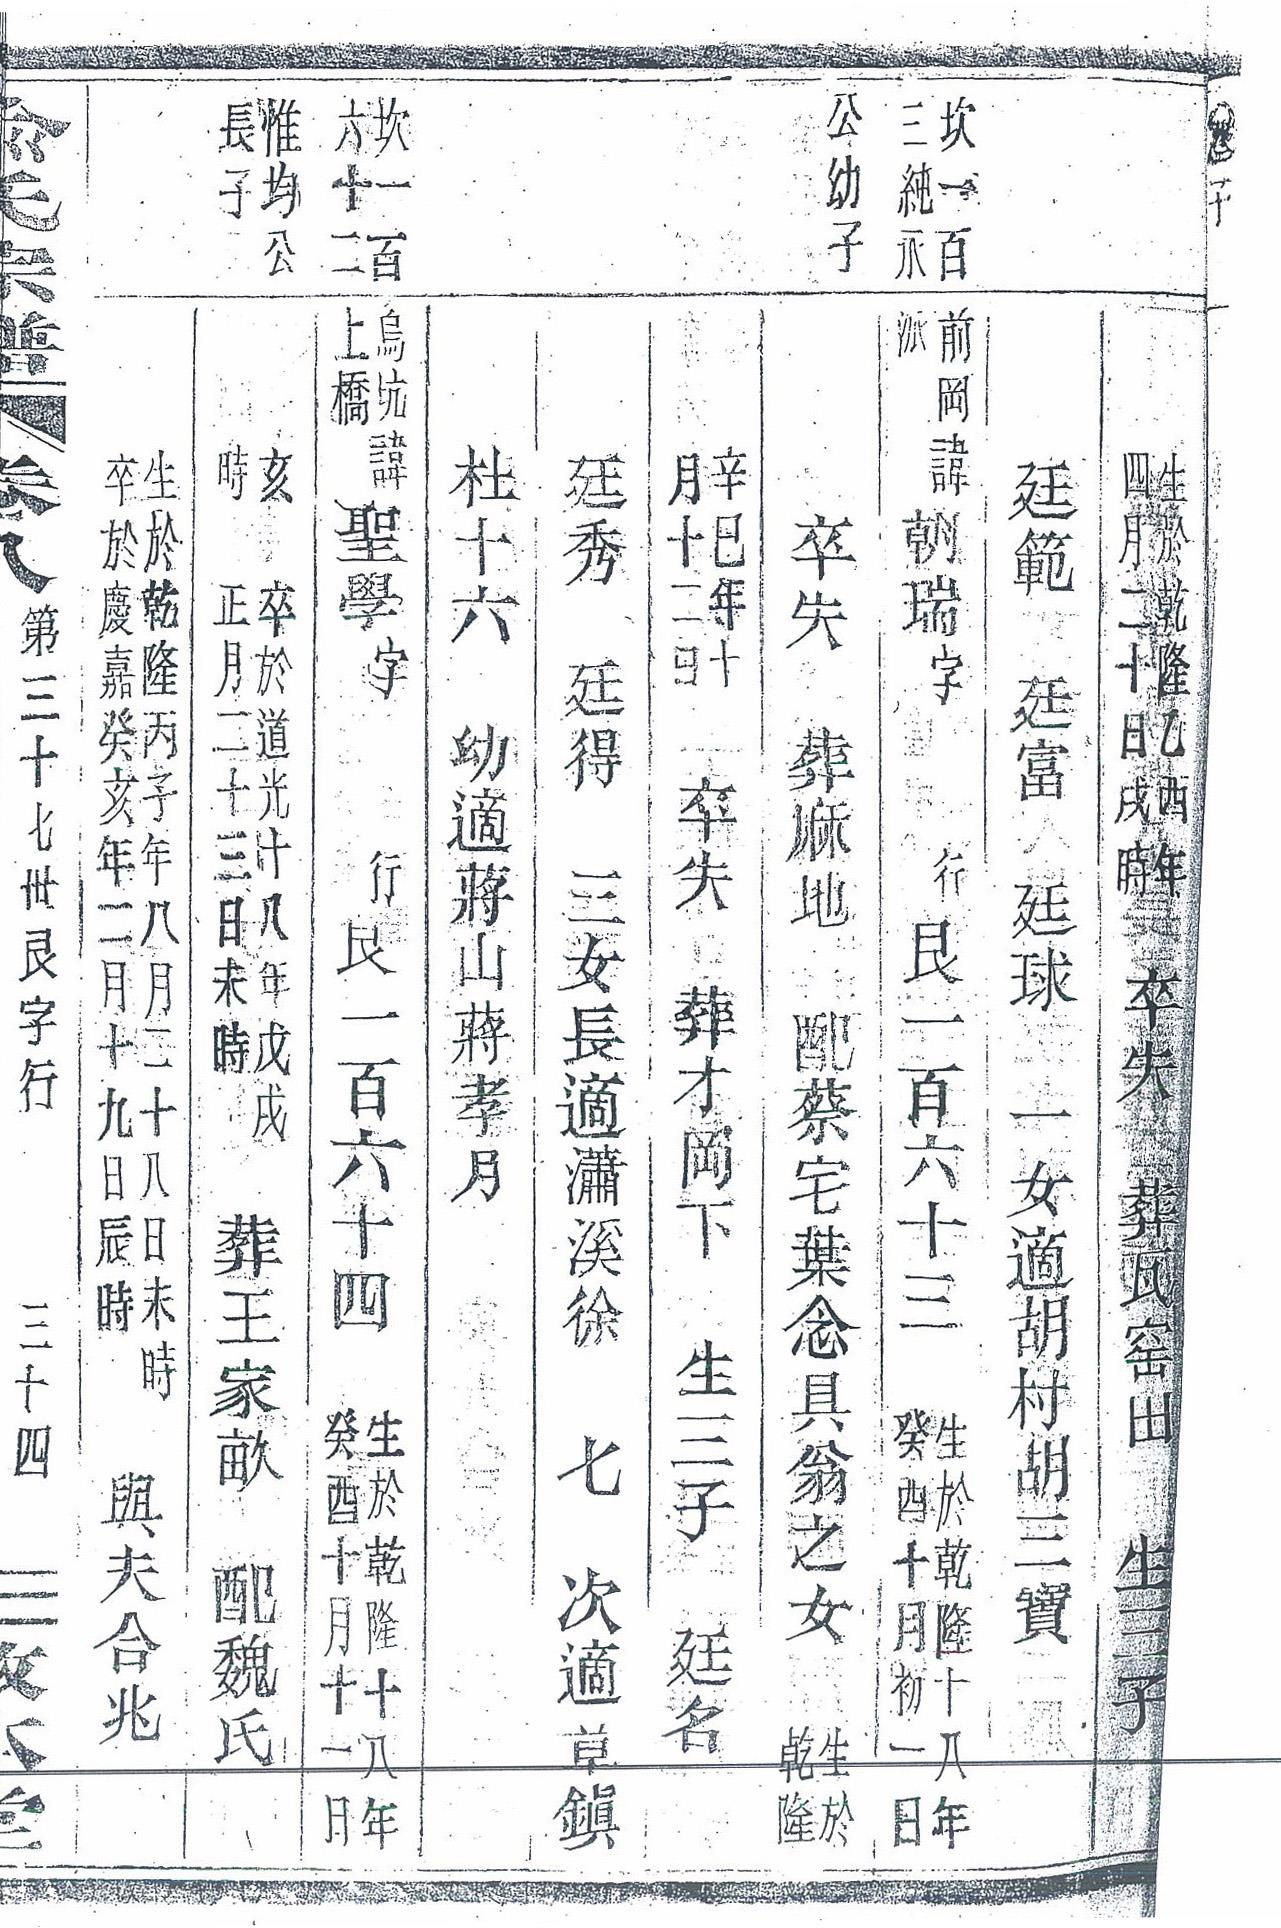 生於乾隆乙酉年
四月二十日戌時 卒失 葬瓦窑山 生三子
廷範 廷富 廷球 一女適胡村胡三寶
坎一百
三純永
公幼子
前岡諱
派
朝瑞字 行艮一百六十三 生於乾隆十八年
癸酉十月初一日
卒失 葬麻地 配蔡宅葉念具翁之女 生於
乾隆
辛巳年十
月十二日 卒失 葬才岡下 生三子 廷名
廷秀 廷得 三女長適瀟溪徐 七 次適草鎮
杜十六 幼適蔣山蔣孝月
坎一百
六十二
惟均公
長子
烏坑諱
上橋
聖學字 行艮一百六十四 生於乾隆十八年
癸酉十月十一日
亥 卒於道光十八年戊戌
時 正月二十三日未時 葬王家畝 配魏氏
生於乾隆丙子年八月二十八日未時
卒於慶嘉癸亥年二月十九日辰時 與夫合兆
氏宗譜 卷八 第三十七世艮字行 三十四